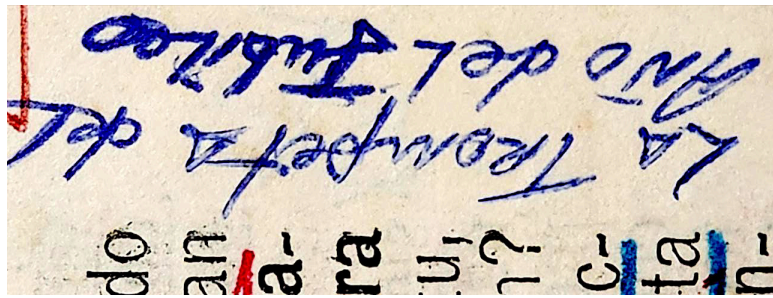 LA Trompeta del
AÑO del Jubileo
do
an
a-
ra
u,
n?
c-
ta
n-